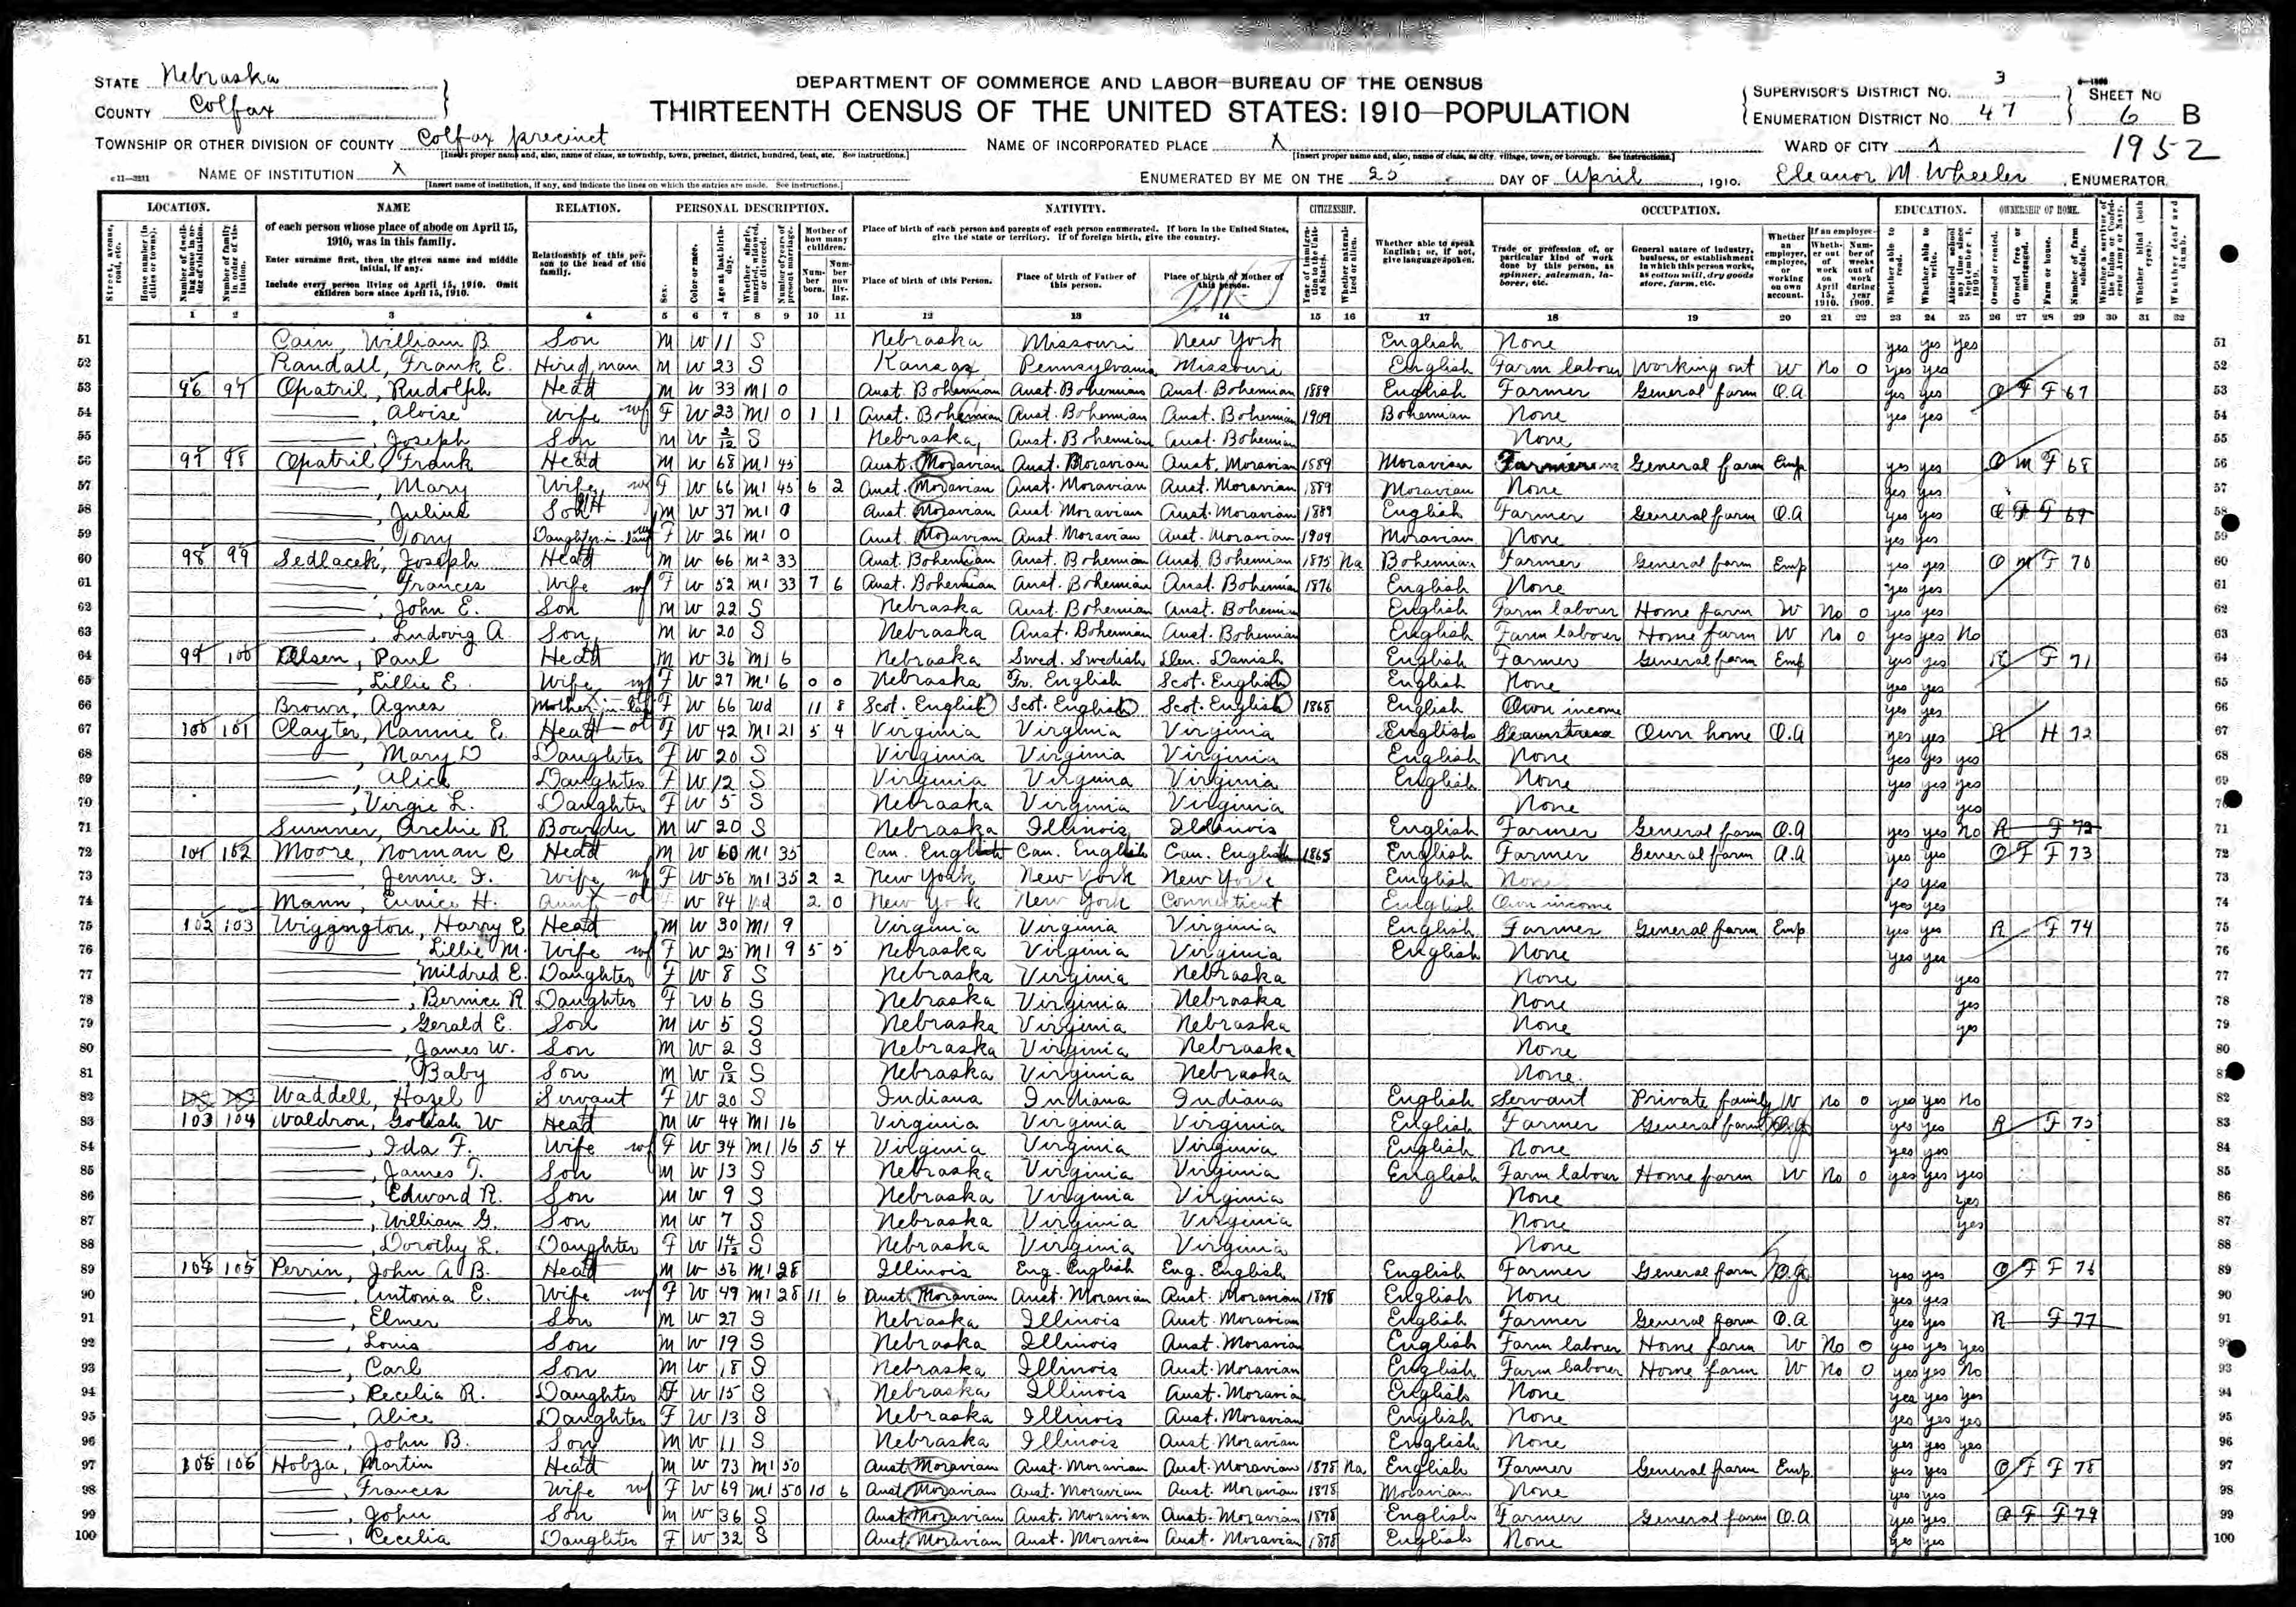 STATE Nebraska
COUNTY Colfax
TOWNSHIP OR OTHER DIVISION OF COUNTY Colfax precinct
[Insert proper name and, also, name of class, as township, town, precinct, district, hundred, beat, etc. See instructions.]
NAME OF INSTITUTION X
[Insert name of institution, if any, and indicate the lines on which the entries are made. See instructions.]
DEPARTMENT OF COMMERCE AND LABOR—BUREAU OF THE CENSUS
THIRTEENTH CENSUS OF THE UNITED STATES: 1910—POPULATION
NAME OF INCORPORATED PLACE X
[Insert proper name and, also, name of class, as city, village, town, or borough. See instructions.]
ENUMERATED BY ME ON THE 25 DAY OF April, 1910. Eleanor M. Wheeler, ENUMERATOR.
SUPERVISOR'S DISTRICT NO. 3
ENUMERATION DISTRICT NO. 47
SHEET NO 6 B
WARD OF CITY
1952
LOCATION. NAME RELATION. PERSONAL DESCRIPTION. NATIVITY. CITIZENSHIP. OCCUPATION. EDUCATION. OWNERSHIP OF HOME.
51 Cain, William B. Son M W 11 S Nebraska Missouri New York English None yes yes yes 51
52 Randall, Frank E. Hired man M W 23 S Kansas Pennsylvania Missouri English Farm labour Working out W No 0 yes yes 52
53 96 97 Opatril, Rudolph Head M W 33 M1 0 Aust. Bohemian Aust. Bohemian Aust. Bohemian 1889 English Farmer General farm O.A yes yes O F F 67 53
54 ——, Aloise Wife F W 23 M1 0 1 1 Aust. Bohemian Aust. Bohemian Aust. Bohemian 1909 Bohemian None yes yes 54
55 ——, Joseph Son M W 3/12 S Nebraska Aust. Bohemian Aust. Bohemian None 55
56 97 98 Opatril, Frank Head M W 68 M1 45 Aust. Moravian Aust. Moravian Aust. Moravian 1889 Moravian Farmer General farm Emp yes yes O M F 68 56
57 ——, Mary Wife F W 66 M1 45 6 2 Aust. Moravian Aust. Moravian Aust. Moravian 1889 Moravian None yes yes 57
58 ——, Julius Son M W 37 M1 0 Aust. Moravian Aust. Moravian Aust. Moravian 1889 English Farmer General farm O.A yes yes O F F 69 58
59 ——, Tony Daughter-in-law F W 26 M1 0 Aust. Moravian Aust. Moravian Aust. Moravian 1909 Moravian None yes yes 59
60 98 99 Sedlacek, Joseph Head M W 66 M2 33 Aust. Bohemian Aust. Bohemian Aust. Bohemian 1875 Na Bohemian Farmer General farm Emp yes yes O M F 70 60
61 ——, Frances Wife F W 52 M1 33 7 6 Aust. Bohemian Aust. Bohemian Aust. Bohemian 1876 English None yes yes 61
62 ——, John E. Son M W 22 S Nebraska Aust. Bohemian Aust. Bohemian English Farm laborer Home farm W No 0 yes yes 62
63 ——, Ludovig A. Son M W 20 S Nebraska Aust. Bohemian Aust. Bohemian English Farm laborer Home farm W No 0 yes yes No 63
64 99 100 Olsen, Paul Head M W 36 M1 6 Nebraska Swed. Swedish Den. Danish English Farmer General farm Emp yes yes R F 71 64
65 ——, Lillie E. Wife F W 27 M1 6 0 0 Nebraska Ir. English Scot. English English None yes yes 65
66 Brown, Agnes Mother-in-law F W 66 Wd 11 8 Scot. English Scot. English Scot. English 1868 English Own income yes yes 66
67 100 101 Clayter, Nannie E. Head F W 42 M1 21 5 4 Virginia Virginia Virginia English Seamstress Own home O.A yes yes R H 72 67
68 ——, Mary D Daughter F W 20 S Virginia Virginia Virginia English None yes yes yes 68
69 ——, Alice Daughter F W 12 S Virginia Virginia Virginia English None yes yes yes 69
70 ——, Virgie L. Daughter F W 5 S Nebraska Virginia Virginia None yes 70
71 Sumner, Archie R Boarder M W 20 S Nebraska Illinois Illinois English Farmer General farm O.A yes yes No R F 72 71
72 101 102 Moore, Norman C Head M W 60 M1 35 Can. English Can. English Can. English 1865 English Farmer General farm O.A yes yes O F F 73 72
73 ——, Jennie I. Wife F W 56 M1 35 2 2 New York New York New York English None yes yes 73
74 Mann, Eunice H. Aunt F W 84 Wd 2 0 New York New York Connecticut English Own income yes yes 74
75 102 103 Wiggington, Harry E Head M W 30 M1 9 Virginia Virginia Virginia English Farmer General farm Emp yes yes R F 74 75
76 —— Lillie M. Wife F W 25 M1 9 5 5 Nebraska Virginia Virginia English None yes yes 76
77 ——, Mildred E. Daughter F W 8 S Nebraska Virginia Nebraska None yes 77
78 ——, Bernice R Daughter F W 6 S Nebraska Virginia Nebraska None yes 78
79 ——, Gerald E. Son M W 5 S Nebraska Virginia Nebraska None yes 79
80 ——, James W. Son M W 2 S Nebraska Virginia Nebraska None 80
81 ——, Baby Son M W 0/12 S Nebraska Virginia Nebraska None 81
82 Waddell, Hazel Servant F W 20 S Indiana Indiana Indiana English Servant Private family W No 0 yes yes No 82
83 103 104 Waldron, Goliah W Head M W 44 M1 16 Virginia Virginia Virginia English Farmer General farm yes yes R F 75 83
84 ——, Ida F. Wife F W 34 M1 16 5 4 Virginia Virginia Virginia English None yes yes 84
85 ——, James T. Son M W 13 S Nebraska Virginia Virginia English Farm labour Home farm W No 0 yes yes yes 85
86 ——, Edward R. Son M W 9 S Nebraska Virginia Virginia None yes 86
87 ——, William G. Son M W 7 S Nebraska Virginia Virginia None yes 87
88 ——, Dorothy L. Daughter F W 1 4/12 S Nebraska Virginia Virginia None 88
89 104 105 Perrin, John A B. Head M W 56 M1 28 Illinois Eng. English Eng. English English Farmer General farm yes yes O F F 76 89
90 ——, Antonia E. Wife F W 49 M1 28 11 6 Aust. Moravian Aust. Moravian Aust. Moravian 1878 English None yes yes 90
91 ——, Elmer Son M W 27 S Nebraska Illinois Aust. Moravian English Farmer General farm O.A yes yes R F 77 91
92 ——, Louis Son M W 19 S Nebraska Illinois Aust. Moravian English Farm laborer Home farm W No 0 yes yes yes 92
93 ——, Carl Son M W 18 S Nebraska Illinois Aust. Moravian English Farm laborer Home farm W No 0 yes yes No 93
94 ——, Cecelia R. Daughter F W 15 S Nebraska Illinois Aust. Moravia English None yes yes yes 94
95 ——, Alice Daughter F W 13 S Nebraska Illinois Aust. Moravian English None yes yes yes 95
96 ——, John B. Son M W 11 S Nebraska Illinois Aust. Moravian English None yes yes yes 96
97 105 106 Hobza, Martin Head M W 73 M1 50 Aust. Moravian Aust. Moravian Aust. Moravian 1878 Na English Farmer General farm Emp yes yes O F F 78 97
98 ——, Frances Wife F W 69 M1 50 10 6 Aust. Moravian Aust. Moravian Aust. Moravian 1878 Moravian None yes yes 98
99 ——, John Son M W 36 S Aust. Moravian Aust. Moravian Aust. Moravian 1878 English Farmer General farm O.A yes yes O F F 79 99
100 ——, Cecelia Daughter F W 32 S Aust. Moravian Aust. Moravian Aust. Moravian 1878 English None yes yes 100